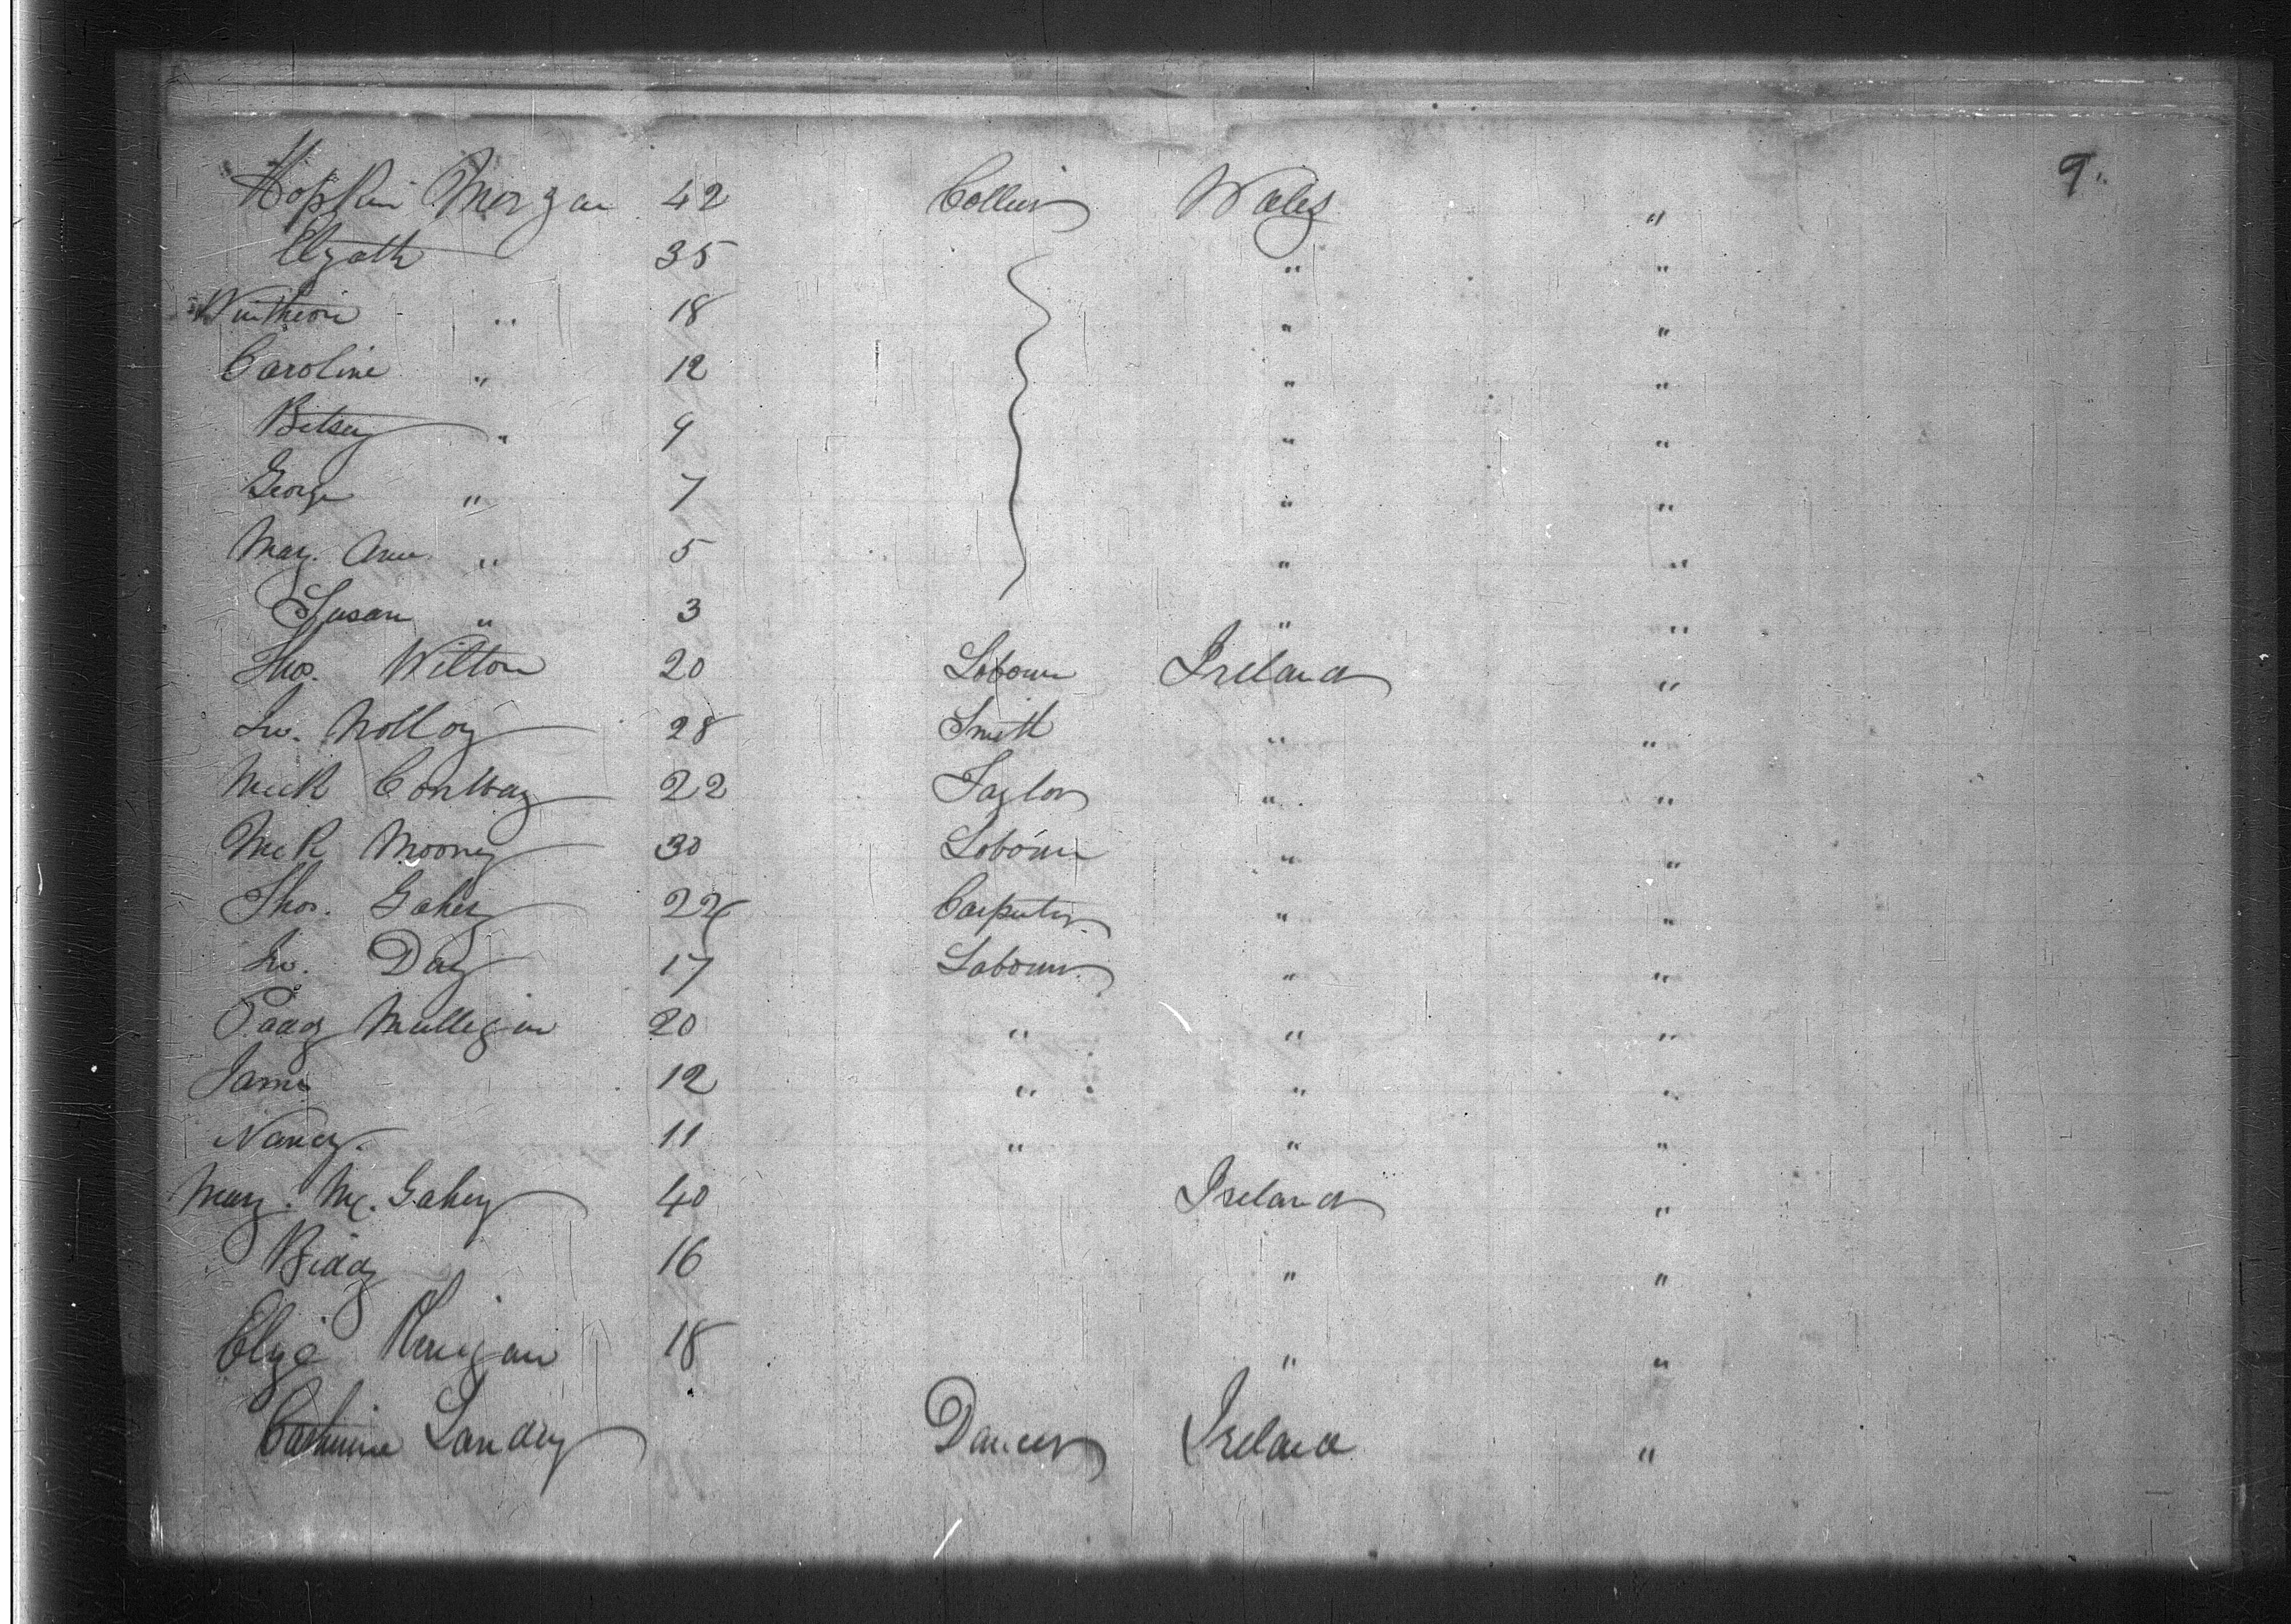 9.
Hopkin Morgan 42 Collier Wales "
Elizath 35 " "
" 18 " "
Caroline " 12 " "
Betsey " 9 " "
George " 7 " "
Mary Ann " 5 " "
Susan " 3 " "
Thos. Wilton 20 Labourer Ireland "
Jno. Molloy 28 Smith " "
Mick Conway 22 Taylor " "
Mick Mooney 30 Labourer " "
Thos. Gahey 22 Carpenter " "
Jno. Day 17 Labourer " "
Paddy Mullegan 20 " " "
James 12 " " "
Nancy. 11 " " "
Mary Mc. Gahey 40 Ireland "
Biddy 16 " "
Eliza 18 " "
Catherine Landry Dancer Ireland "